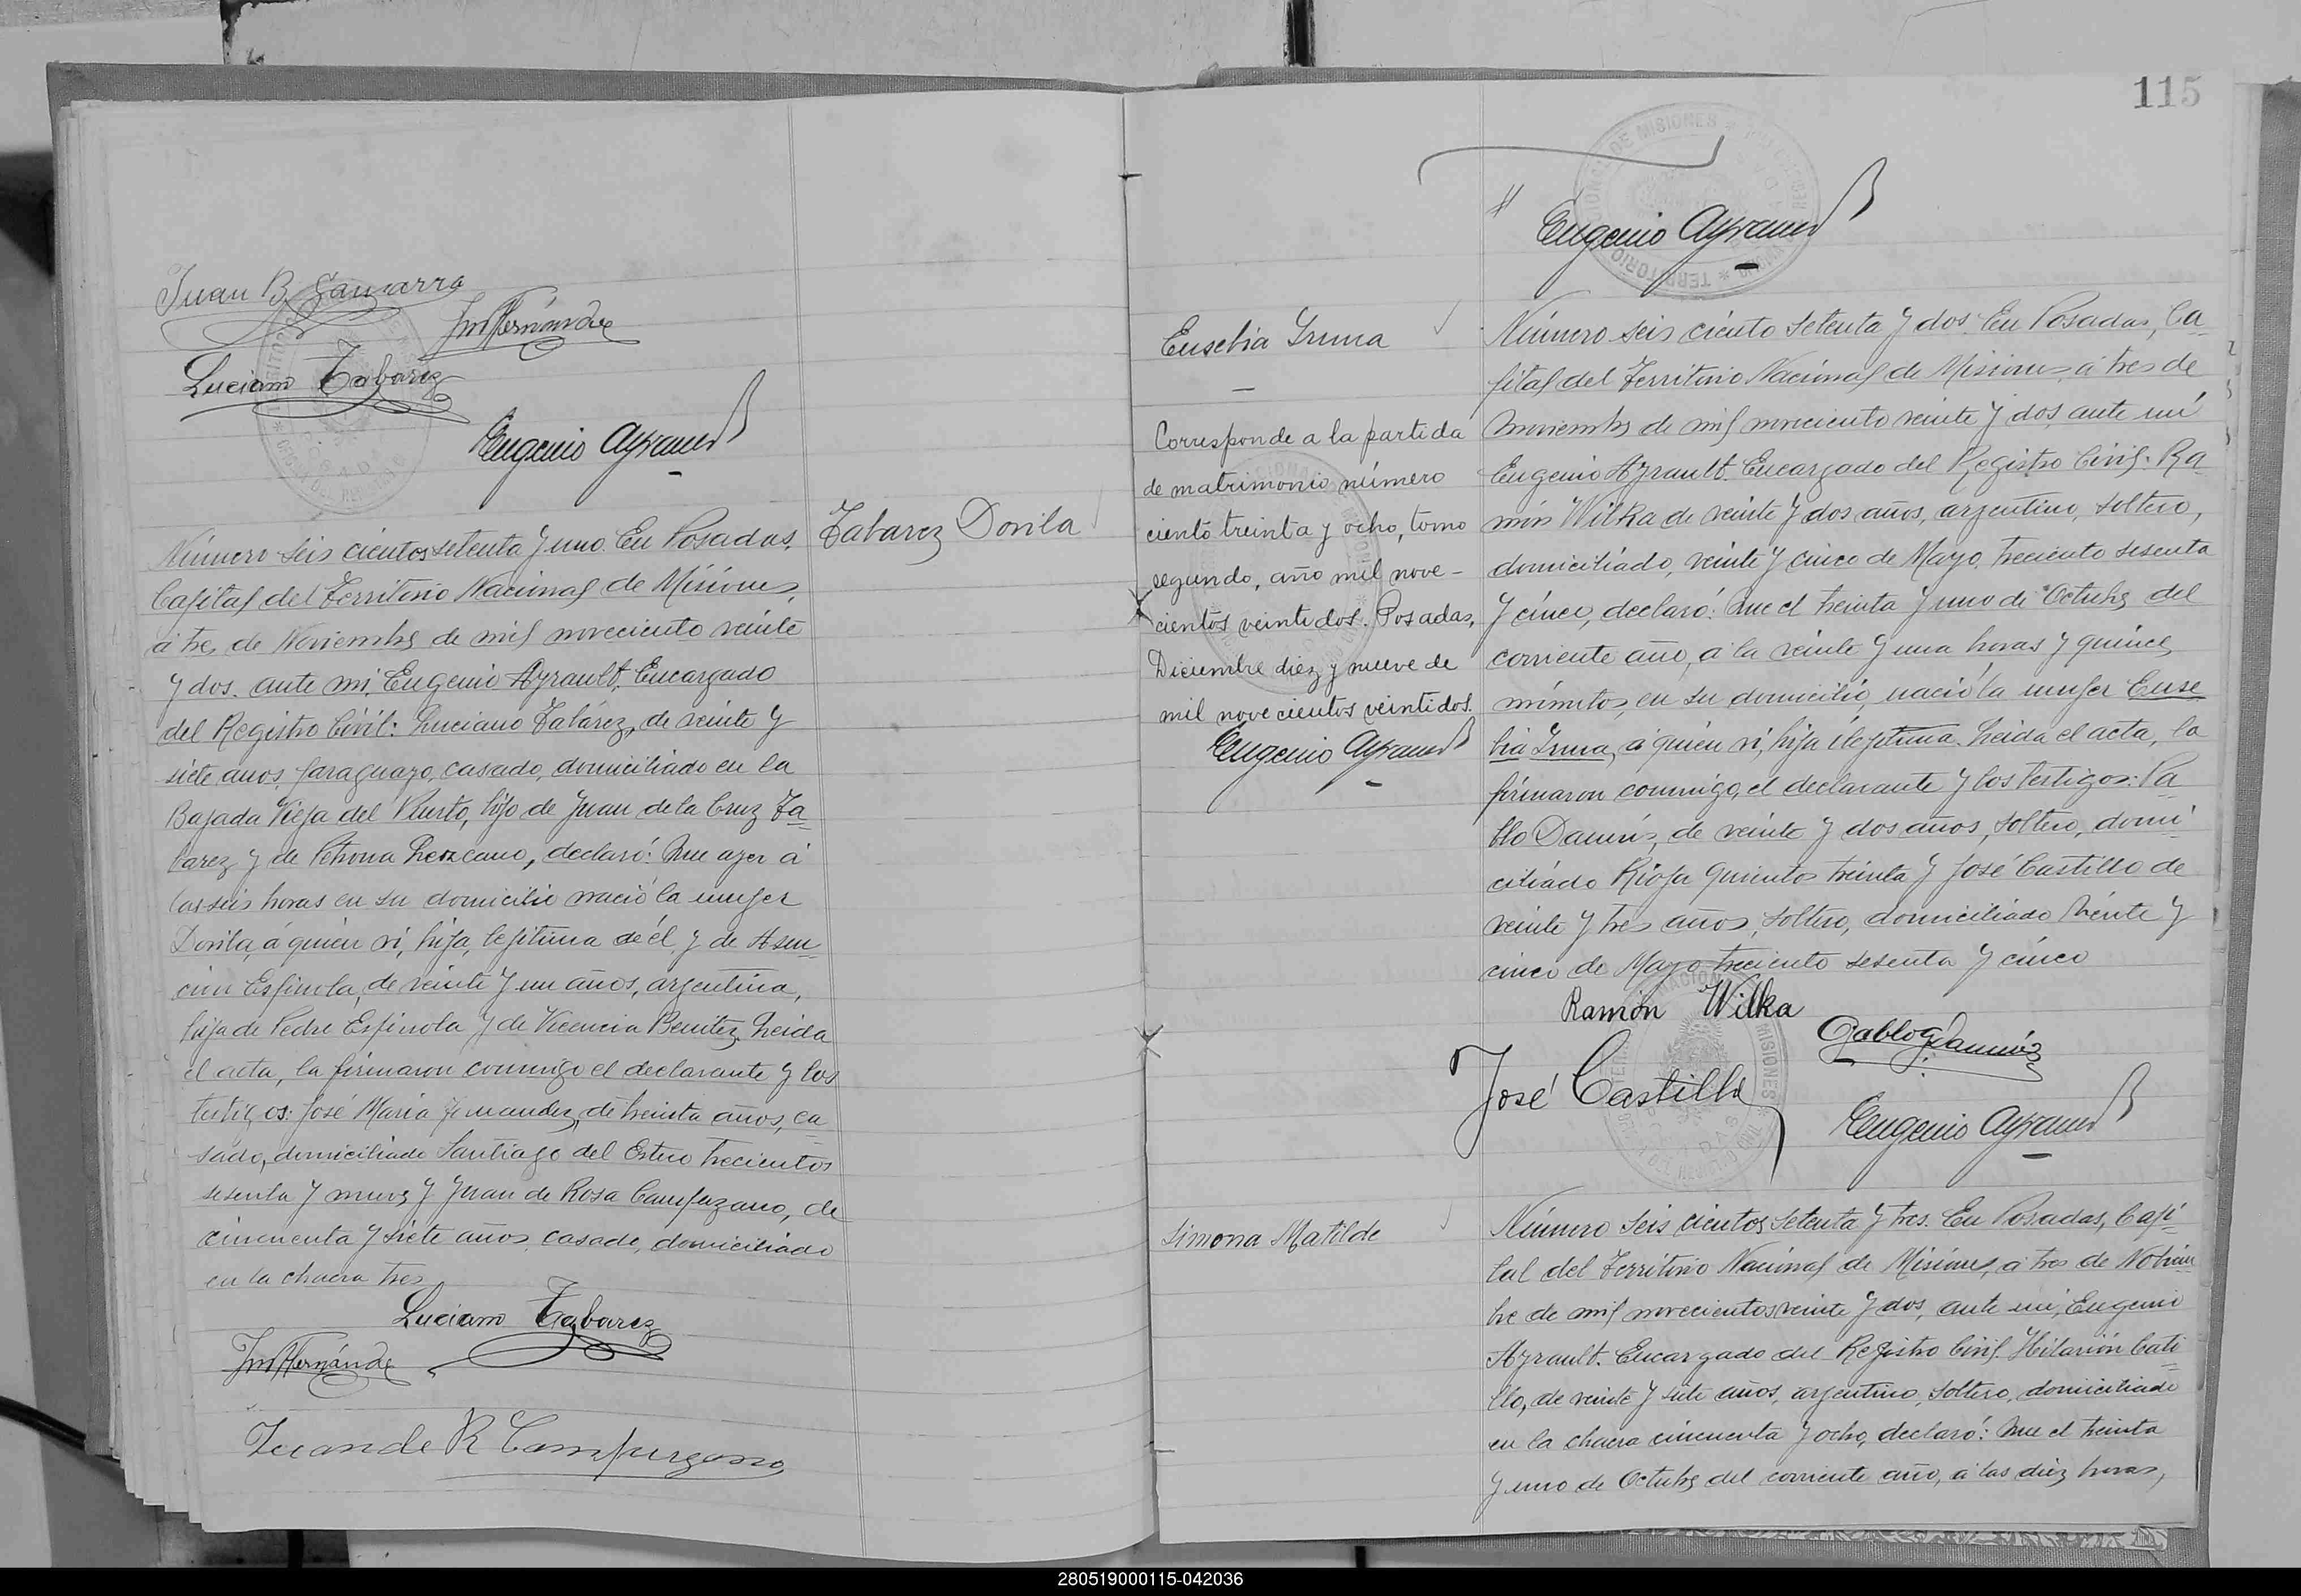 Juan B. Gamarra
JM Hernández
Luciano Tabarez
Eugenio Ayrault
Tabarez Dorila
Número seis cientos setenta y uno. En Posadas,
Capital del Territorio Nacional de Misiones,
á tres de Noviembre de mil noveciento veinte
y dos. ante mi, Eugenio Ayrault, Encargado
del Registro Civil: Luciano Tabárez, de veinte y
siete años, paraguayo, casado, domiciliado en la
Bajada Vieja del Puerto, hijo de Juan de la Cruz Ta=
barez y de Petrona Lezcano, declaró: Que ayer á
las seis horas en su domicilio nació la mujer
Dorila, á quien vi, hija, legítima de él, y de Asun=
ción Espinola, de veinte y un años, argentina,
hija de Pedro Espinola y de Vicencia Benitez. Leida
el acta, la firmaron conmigo el declarante y los
testigos: José María Fernandez, de treinta años, ca=
sado, domiciliado Santiago del Estero trecientos
sesenta y nueve y Juan de Rosa Campuzano, de
cincuenta y siete años, casado, domiciliado
en la chacra tres
Luciano Tabarez
JM Hernández
Juan de R Campuzano
115
Eugenio Ayrault
Eusebia Irma
Corresponde a la partida
de matrimonio número
ciento treinta y ocho, tomo
segundo, año mil nove-
cientos veintidos. Posadas,
Diciembre diez y nueve de
mil novecientos veintidos.
Eugenio Ayrault
Número seis ciento setenta y dos. En Posadas, Ca=
pital del Territorio Nacional de Misiones, á tres de
Noviembre de mil noveciento veinte y dos, ante mí
Eugenio Ayrault. Encargado del Registro Civil: Ra=
món Wilka de veinte y dos años, argentino, soltero,
domiciliado, veinte y cinco de Mayo, treciento sesenta
y cinco, declaró: Que el treinta y uno de Octubre del
corriente año, á la veinte y una horas y quince
minutos, en su domicilio, nació la mujer Euse
bia Irma, á quien vi, hija ilegítima. Leida el acta, la
firmaron conmigo, el declarante y los testigos: Pa=
blo Damús, de veinte y dos años, soltero, domi=
ciliado Rioja quinientos treinta y José Castillo de
veinte y tres años, soltero, domiciliado Veinte y
cinco de Mayo treciento sesenta y cinco
Ramón Wilka
José Castillo
Eugenio Ayrault
Simona Matilde
Número seis cientos setenta y tres. En Posadas, Capi=
tal del Territorio Nacional de Misiones, á tres de Noviem
bre de mil novecientos veinte y dos, ante mi, Eugenio
Ayrault. Encargado del Registro Civil. Hilarión Cati=
llo, de veinte y siete años, argentino, soltero, domiciliado
en la chacra cincuenta y ocho, declaró: Que el treinta
y uno de Octubre del corriente año, á las diez horas,
280519000115-042036